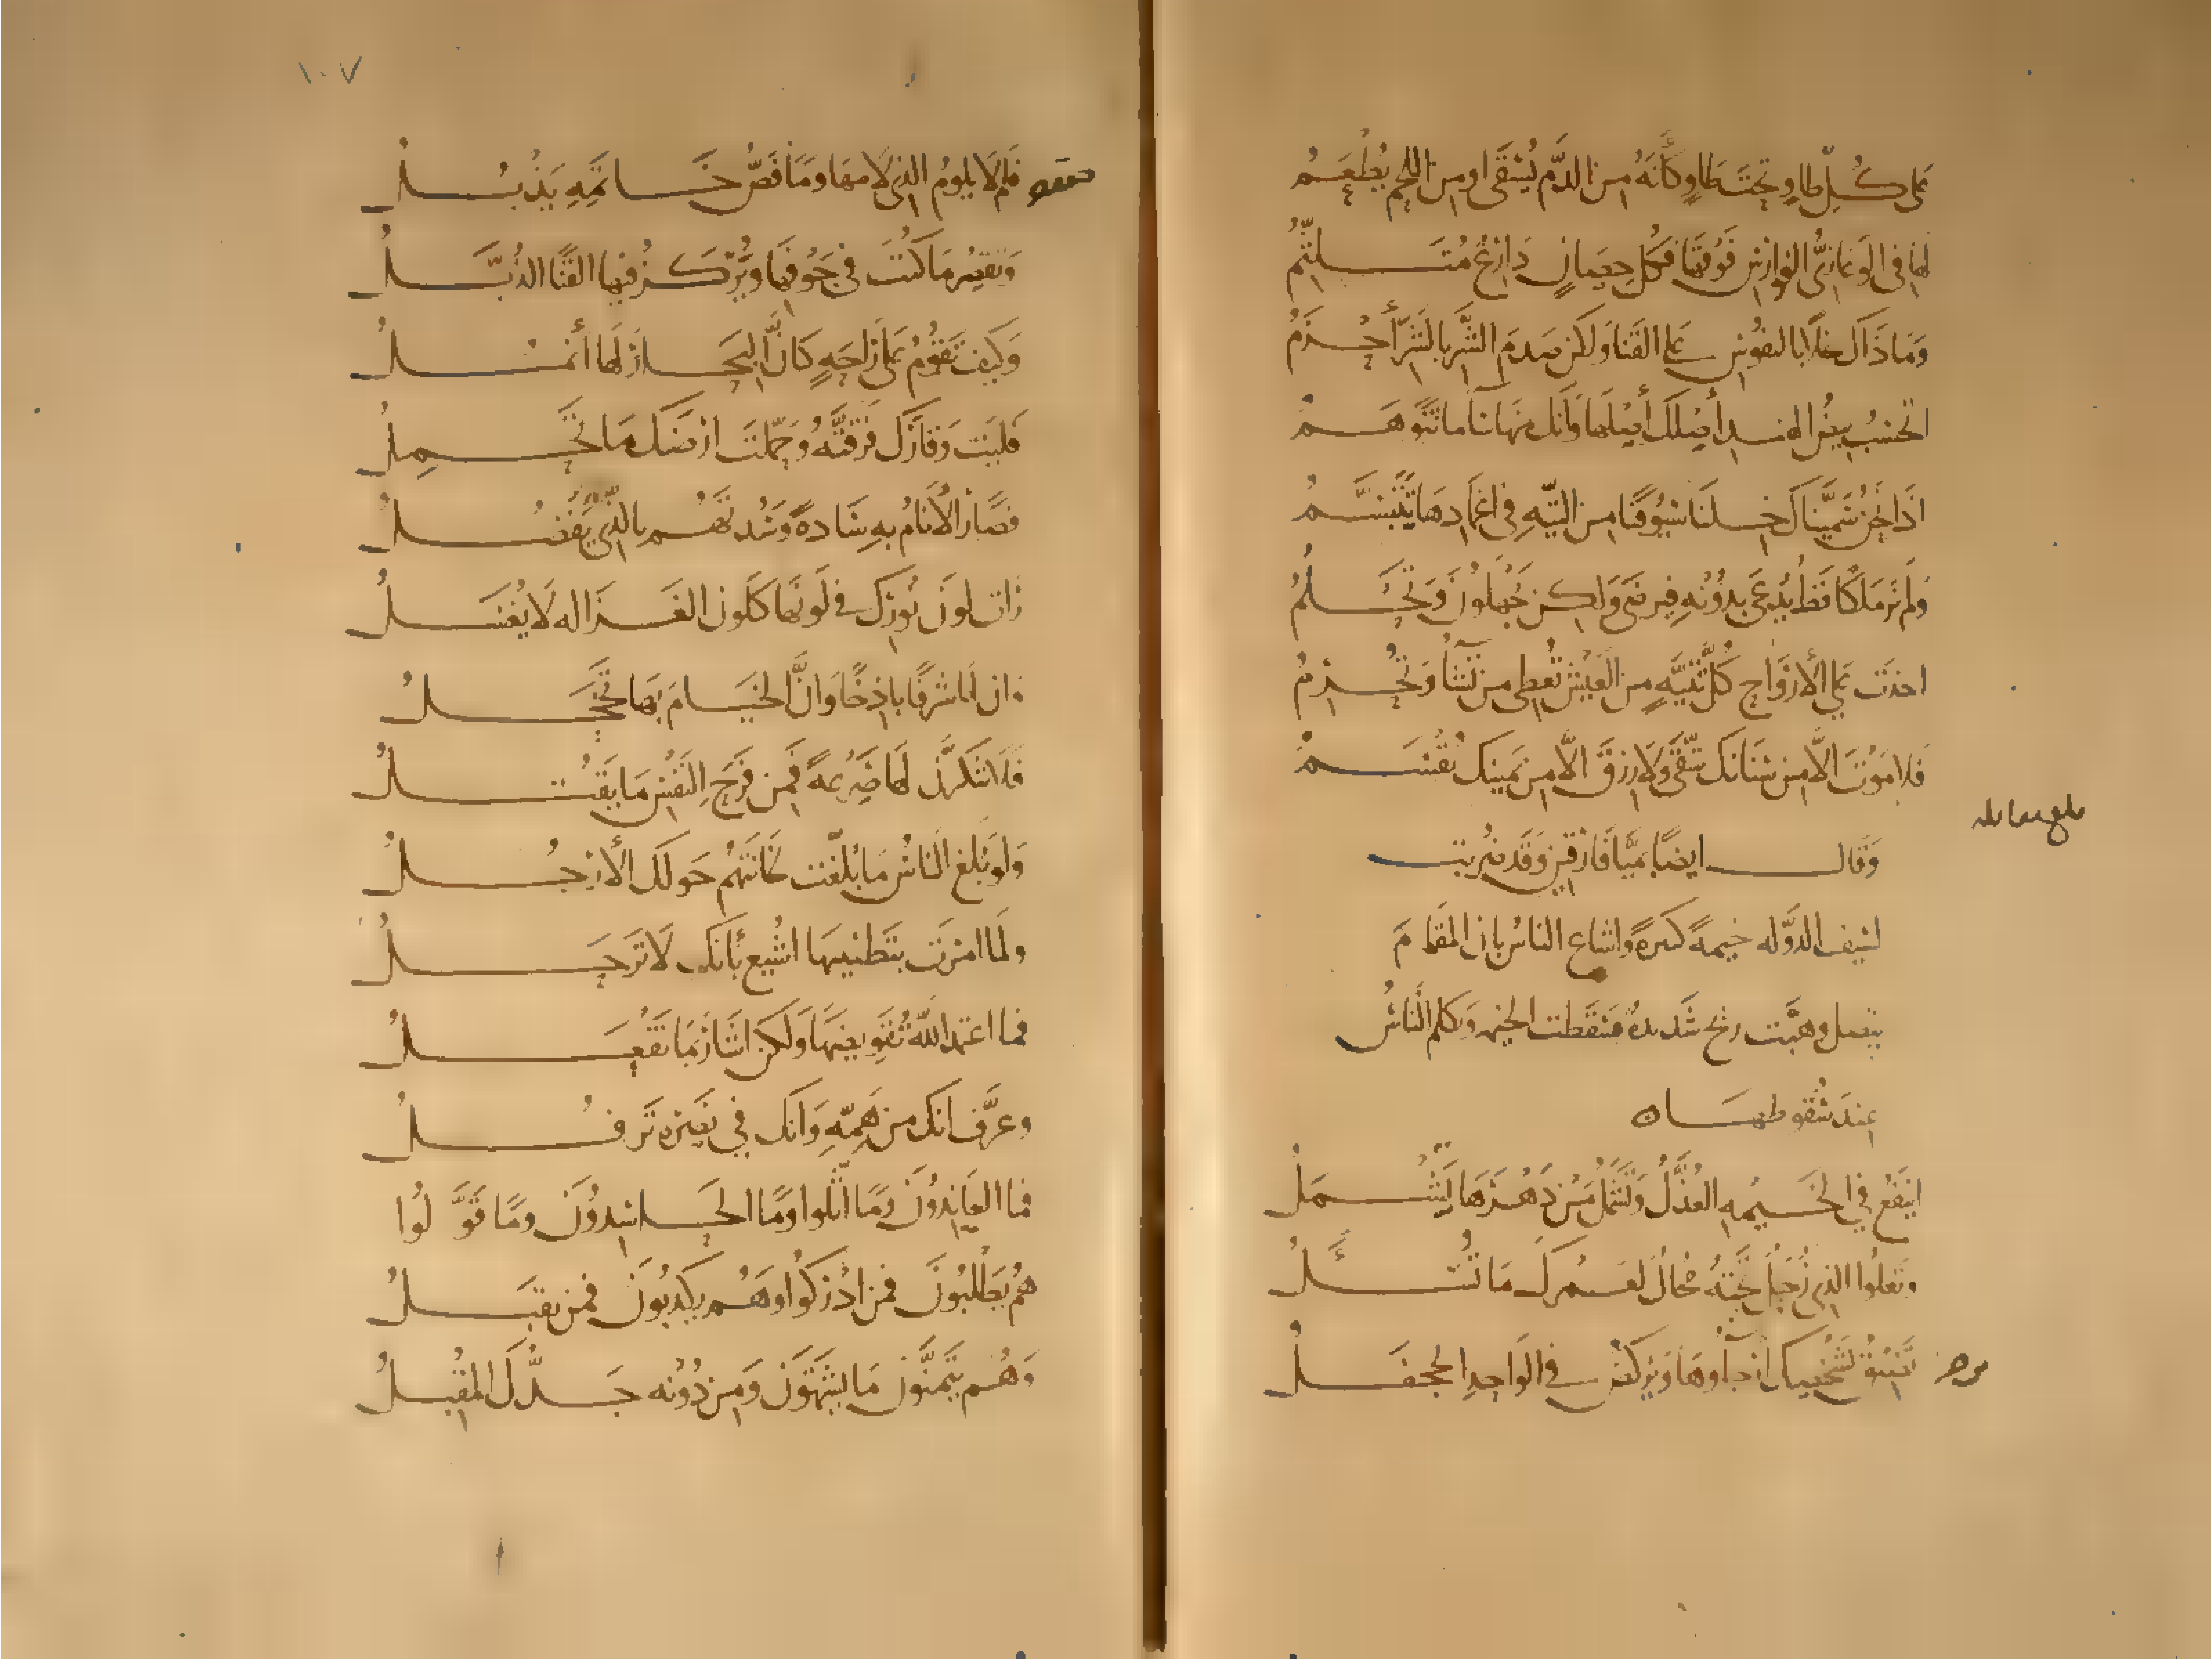 على كُلِّ طاوٍ تحتَ طاوٍ كأنَّهُ من الدَّم يُسْقَى او من اللحم يُطْعَمُ
لها في الوغا زيُّ الفوارس فَوْقَها فكلُّ حصانٍ دَارعٌ مُتَلثِّمُ
وَمَا ذَاكَ بخلًا بالنفوس على القَنَا وَلكن صَدمَ الشَّرِ بالشَّرِّ أَحْزَمُ
اتحسبُ بيضُ الهند أصلكَ أصْلَها وَأنك منها سَآ مَا تتوَهَّمُ
اذَا نحنُ سَمَّيناكَ خِلنَا سُيُوفَنا من التِّيهِ في اغمادها تَتَبَسَّمُ
وَلم نَرَ مَلكًا قَطُّ يُدعَى بدُونِهِ فيرضَى وَلكن يجهَلُونَ وَتَحْلُمُ
اخذتَ على الأرْوَاحِ كُلَّ ثَنِيَّةٍ من العَيْش تُعطِى من تَشَآءُ وَتُحْرِمُ
فَلا مَوْتَ الَّا من سنَانكَ يُتَّقَى وَلَا رزقَ الَّا من يَمينكَ يُقْسَمُ
وَقَال ايضًا بميَّافَارقين وَقَد ضُربت
لسيف الدَّوله خيمةٌ كبيرةٌ واشاع الناسُ بان المقامَ
يتصل وهبَّت ريحٌ شَديدةٌ فسَقَطت الخيمه وتكلم النَّاسُ
عِندَ سُقوطهَا ه
ايَنفَعُ في الخَيمهِ العُذَّلُ وَتَشْمَلُ مَنْ دَهْرَهَا يَشْمَلُ
وتعلوا الذي زُحَلٌ تحتَهُ محَالٌ لعَمركَ مَا تُسْئَلُ
تَضيْقُ بشَخْصِكَ ارْجآؤهَا وَيركضُ في الوَاحِدِ الجحفَلُ
١٠٧
فلم لَا يلومُ الذي لَامهَا ومَا فَصُّ خَاتمَهِ يَذْبُلُ
وَتقصُر مَا كنتَ في جَوْفهَا وَيُرْكَزُ فيها القَنَا الذُبَّلُ
وَكيف تَقوْمُ عَلى رَاحَةٍ كَأنَّ البِحَارَ لَهَا أنْمُلُ
فَليت وَقارَكَ فرّقتَهُ وَحَمّلتَ ارْضَكَ مَا تَحْمِلُ
فصَارَ الأنَامُ بهِ سَادةً وَسُدتَهُم بالذِّي يَفْضُلُ
رَات لونَ نُورِكَ في لَونهَا كَلَون الغَزَاله لَا يُغْسَلُ
وَان لهَا شرفًا باذخًا وَانَّ الخيَامَ بهَا تَخْجَلُ
فَلَا تُنكرَنَّ لهَا صَرْعةً فَمِن فَرَحِ النَّفسِ مَا يَقْتُلُ
وَلو بُلِّغ النَاسُ مَا بُلّغت لخَانَتهُم حَولكَ الأرْجُلُ
ولمَا امَرْتَ بتَطنيبهَا اشيعَ بأنَكَ لَا تَرحَلُ
فما اعتمد اللهُ تَقويضهَا وَلَكن اشَارَ بمَا تَفْعَلُ
وعرَّف انكَ من هَمِّهِ وَانكَ في نَصره تَرفُلُ
فما العَاندُونَ ومَا اثَّلوا ومَا الحَاسدُوْنَ ومَا قَوَّلُوا
هُمُ يَطْلبُونَ فمن ادْرَكُوا وَهُم يكذبُونَ فمن يقبَلُ
وَهُم يتَمنَّون مَا يشتَهُوْنَ وَمِن دُوْنه جَدُّكَ المُقْبلُ